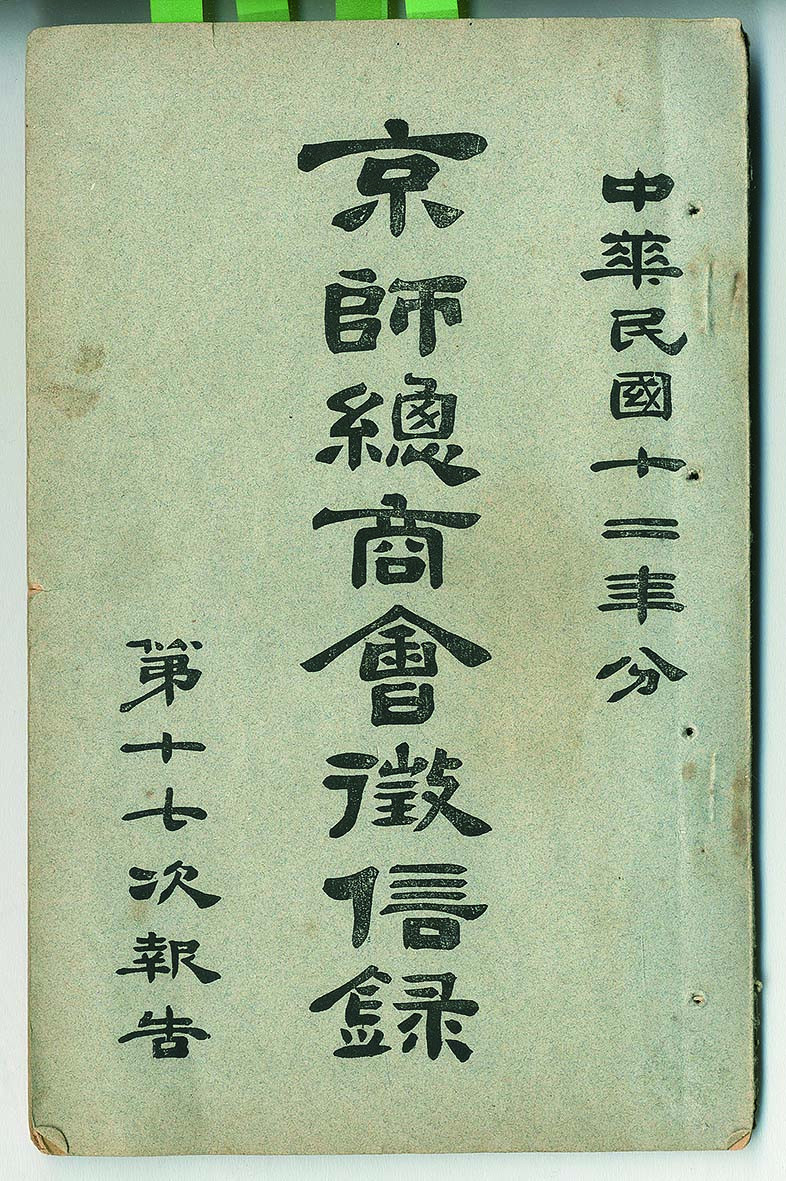 中華民國十二年分
京師總商會徵信録
第十七次報告